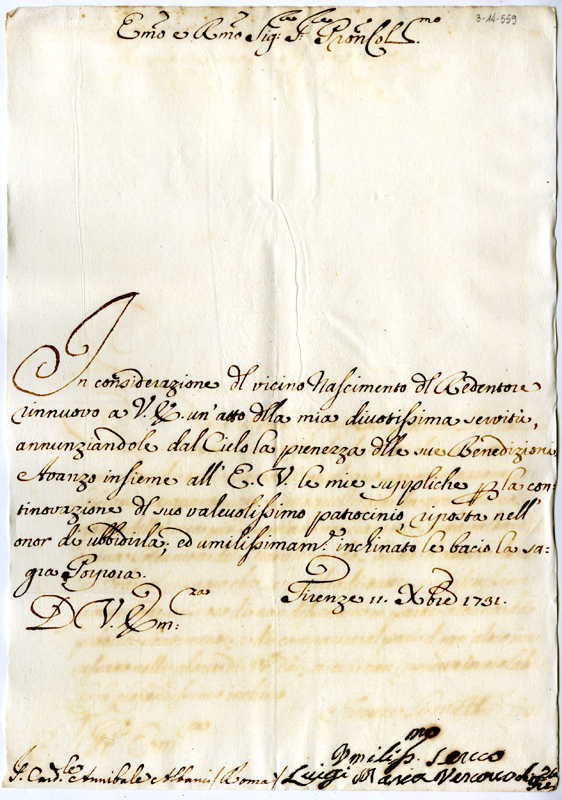 3-14-559
Em̃o e Rm̃o Sig:re S:re Pron Col.mo
In considerazione dl vicino Nascimento dl Redentore
rinnuovo a V. E. un'atto dlla mia divotissima servitù,
annunziandole dal Cielo la pienezza dlle sue Benedizioni.
Avanzo insieme all'E. V. le mie suppliche p la con-
tinovazione dl suo valevolissimo patrocinio, riposta nell'
onor di ubbidirla; ed umilissimam.e inchinato le bacio la sa-
gra Porpora.
Firenze 11. Xbre 1731.
D V. Em:za
Umiliss.mo Servo
S. Card.le Annibale Albani / Roma /
Luigi Maria